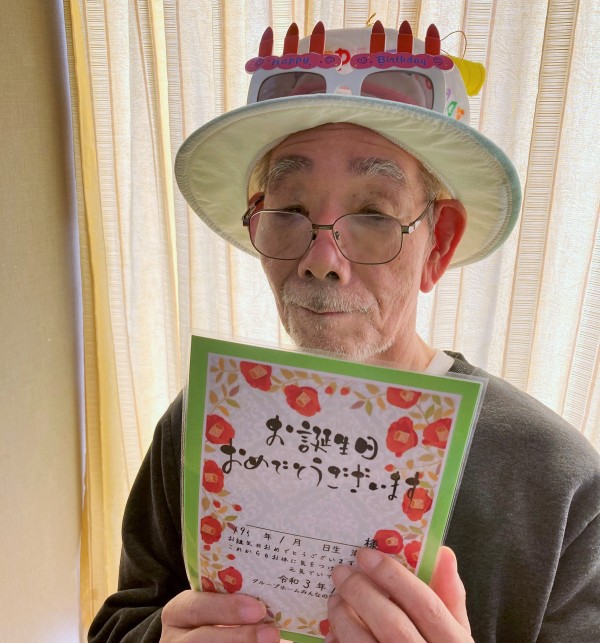 Happy Birthday
お誕生日
おめでとうございます
年 1月 日生 様
お誕生日おめでとうございます
これからもお体に気をつけ
元気でい
令和3年1
グループホームみんなの